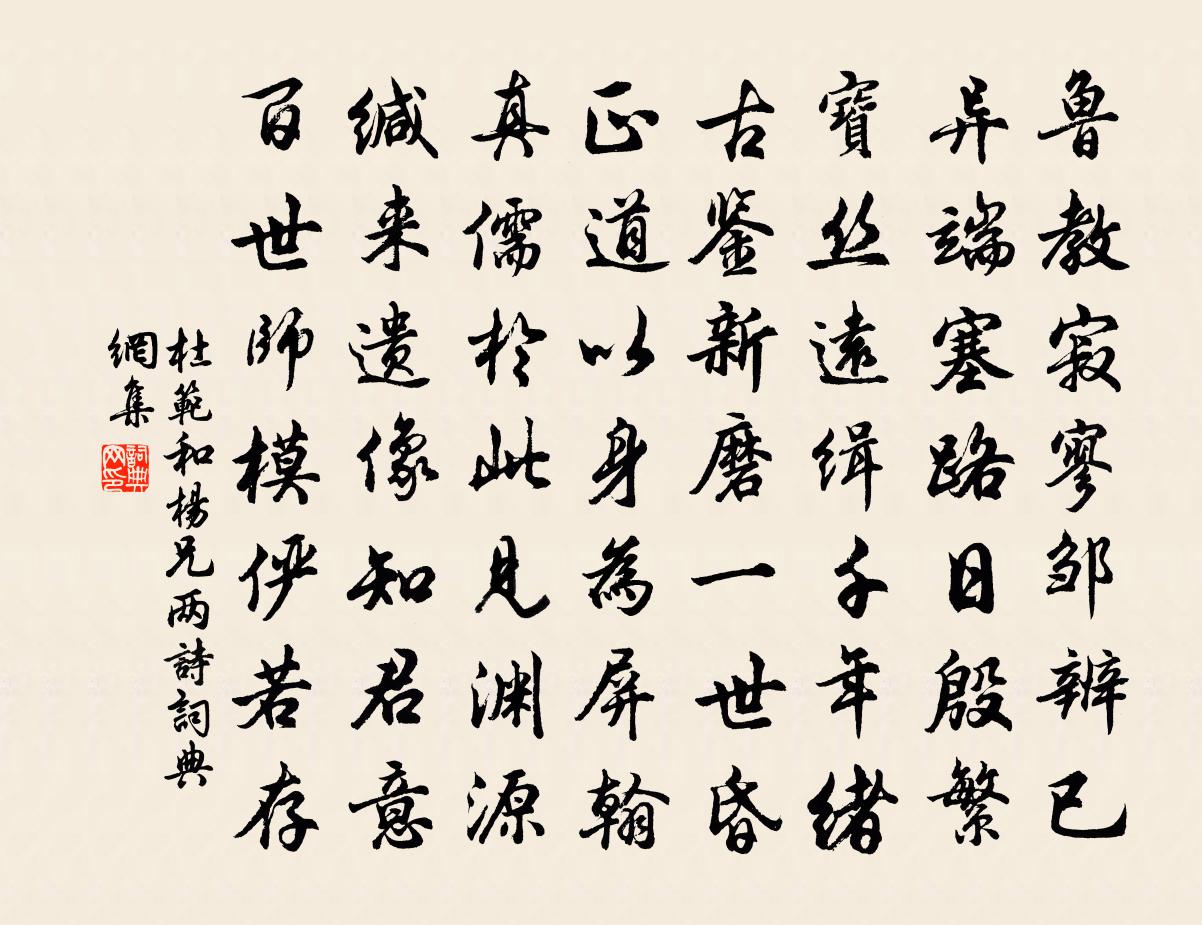 鲁教寂寥邹辨已
异端塞路日殷繁
寶丝遠缉千年绪
古鉴新磨一世昏
正道以身為屏翰
真儒於此见渊源
缄来遗像知君意
百世师模俨若存
杜範和楊兄两詩詞典
網集
詞典
网印